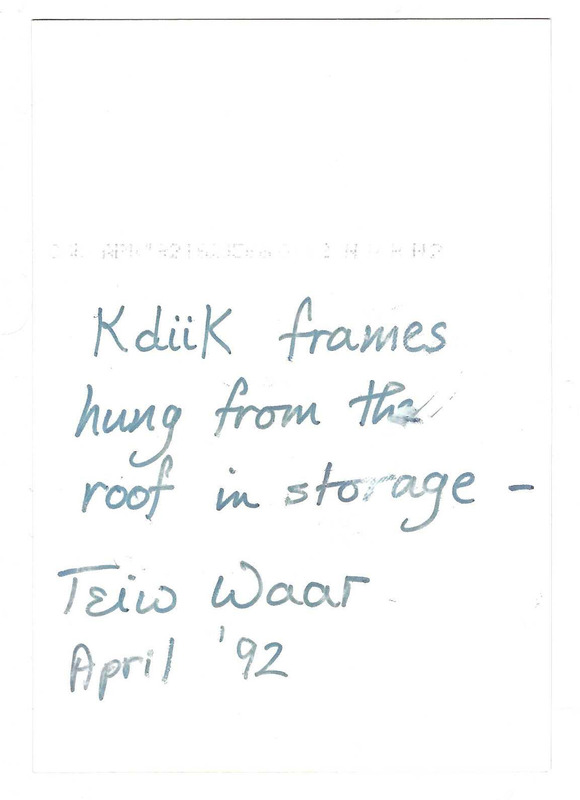 Kdiik frames
hung from the
roof in storage -
Tɛiw Waar
April '92